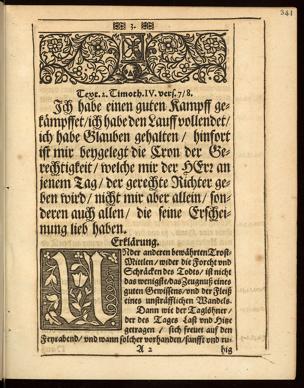 341
3.
Text. 2. Timoth. IV. vers. 7/8.
Ich habe einen guten Kampff ge-
kämpffet / ich habe den Lauff vollendet /
ich habe Glauben gehalten / hinfort
ist mir beygelegt die Cron der Ge-
rechtigkeit / welche mir der HErr an
jenem Tag / der gerechte Richter ge-
ben wird / nicht mir aber allein / son-
deren auch allen / die seine Erschei-
nung lieb haben.
Erklärung.
UNder anderen bewährten Trost-
Mittlen / wider die Forcht und
Schräcken des Todts / ist nicht
das wenigste / das Zeugnuß eines
guten Gewissens / und der Fleiß
eines unsträfflichen Wandels.
Dann wie der Taglöhner /
der des Tages Last und Hitze
getragen / sich freuet auf den
Feyrabend / und wann solcher vorhanden / sanfft und ru-
A 2 hig